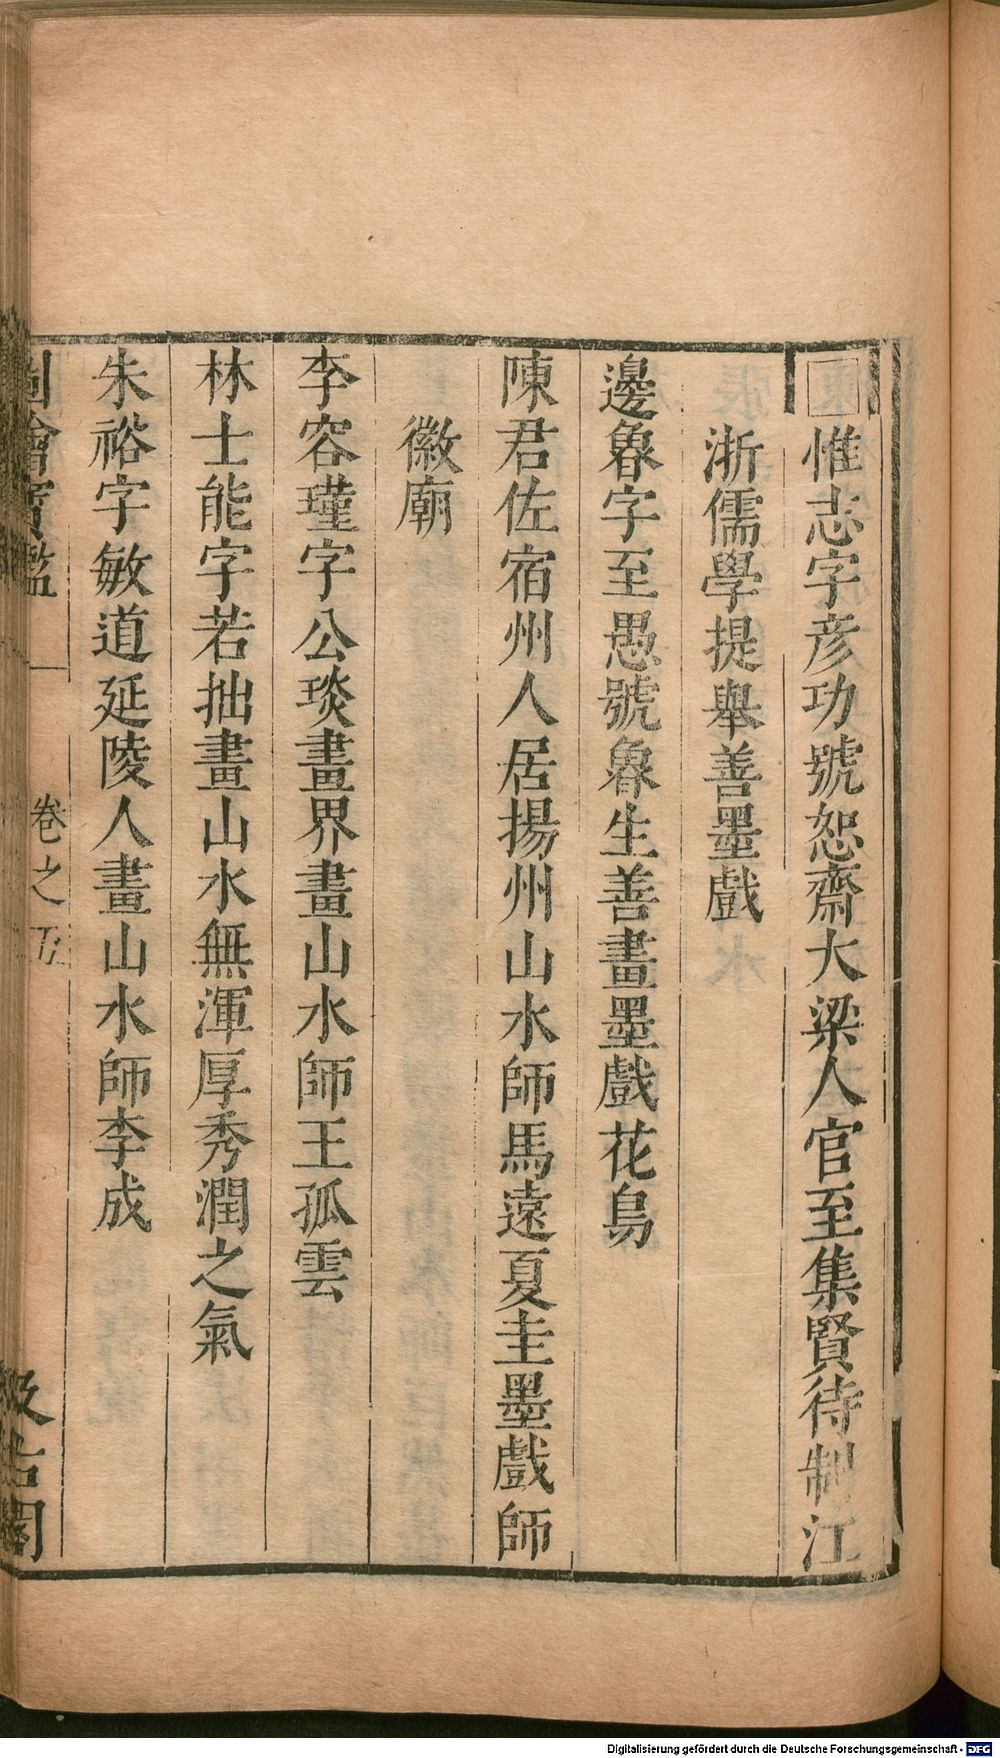 □惟志字彦功號恕齋大梁人官至集賢待制江
浙儒學提舉善墨戲
邊魯字至愚號魯生善畫墨戲花鳥
陳君佐宿州人居揚州山水師馬遠夏圭墨戲師
徽廟
李容瑾字公琰畫界畫山水師王孤雲
林士能字若拙畫山水無渾厚秀潤之氣
朱裕字敏道延陵人畫山水師李成
圖繪寶鑑 卷之五 汲古閣
Digitalisierung gefördert durch die Deutsche Forschungsgemeinschaft - DFG